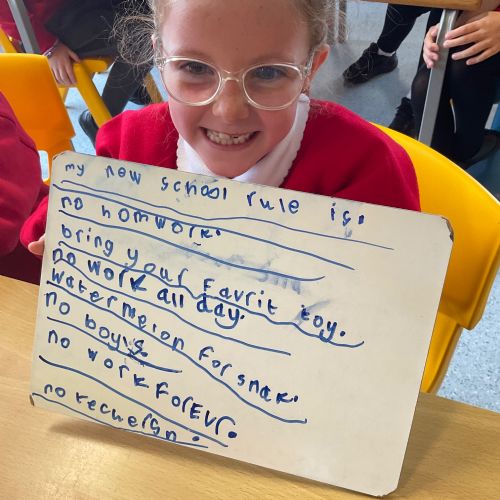 my new school rule is.
no homwork.
bring your favrit toy.
no work all day.
watermelon for snak.
no boyis.
no work forEvr.
no techersn.